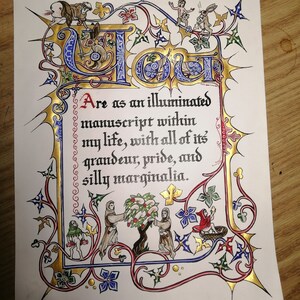 You
Are as an illuminated
manuscript within
my life, with all of its
grandeur, pride, and
silly marginalia.